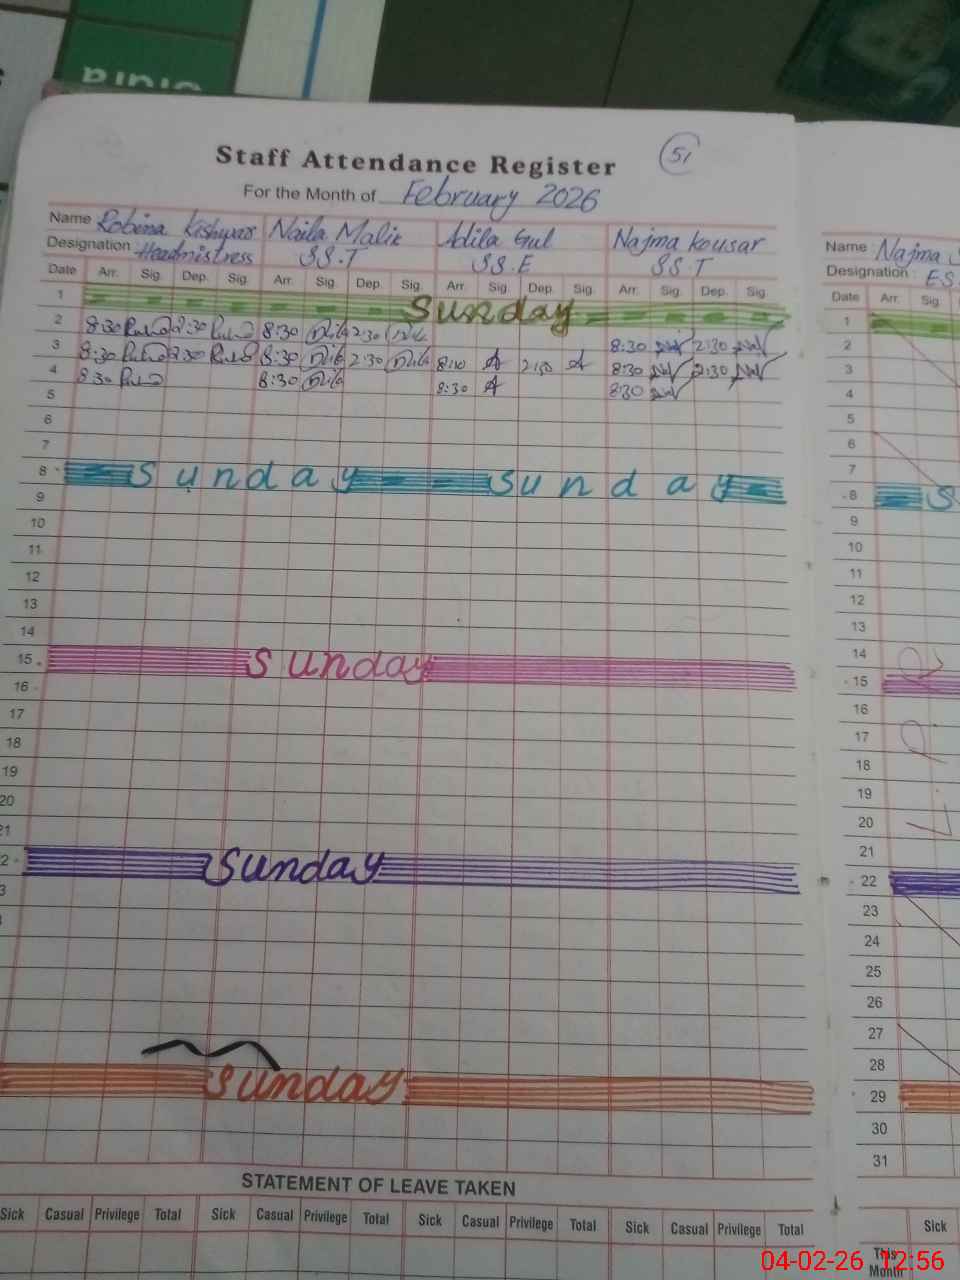 Staff Attendance Register
51
For the Month of February 2026
Name Robina Kishwar Naila Malik Adila Gul Najma Kousar
Designation Headmistress SS.T SS.E SS.T
Date Arr. Sig. Dep. Sig. Arr. Sig. Dep. Sig. Arr. Sig. Dep. Sig. Arr. Sig. Dep. Sig.
1 Sunday
2 8:30 2:30 8:30 2:30 8:30 2:30
3 8:30 2:30 8:30 2:30 8:30 2:30
4 8:30 8:30 8:30 8:30
5
6
7
8 Sunday Sunday
9
10
11
12
13
14
15 Sunday
16
17
18
19
20
21
2 Sunday
3
Sunday
STATEMENT OF LEAVE TAKEN
Sick Casual Privilege Total Sick Casual Privilege Total Sick Casual Privilege Total Sick Casual Privilege Total
Name Najma
Designation : E.S.
Date Arr. Sig.
1
2
3
4
5
6
7
8 S
9
10
11
12
13
14
15
16
17
18
19
20
21
22
23
24
25
26
27
28
29
30
31
Sick
This
Month
04-02-26 12:56